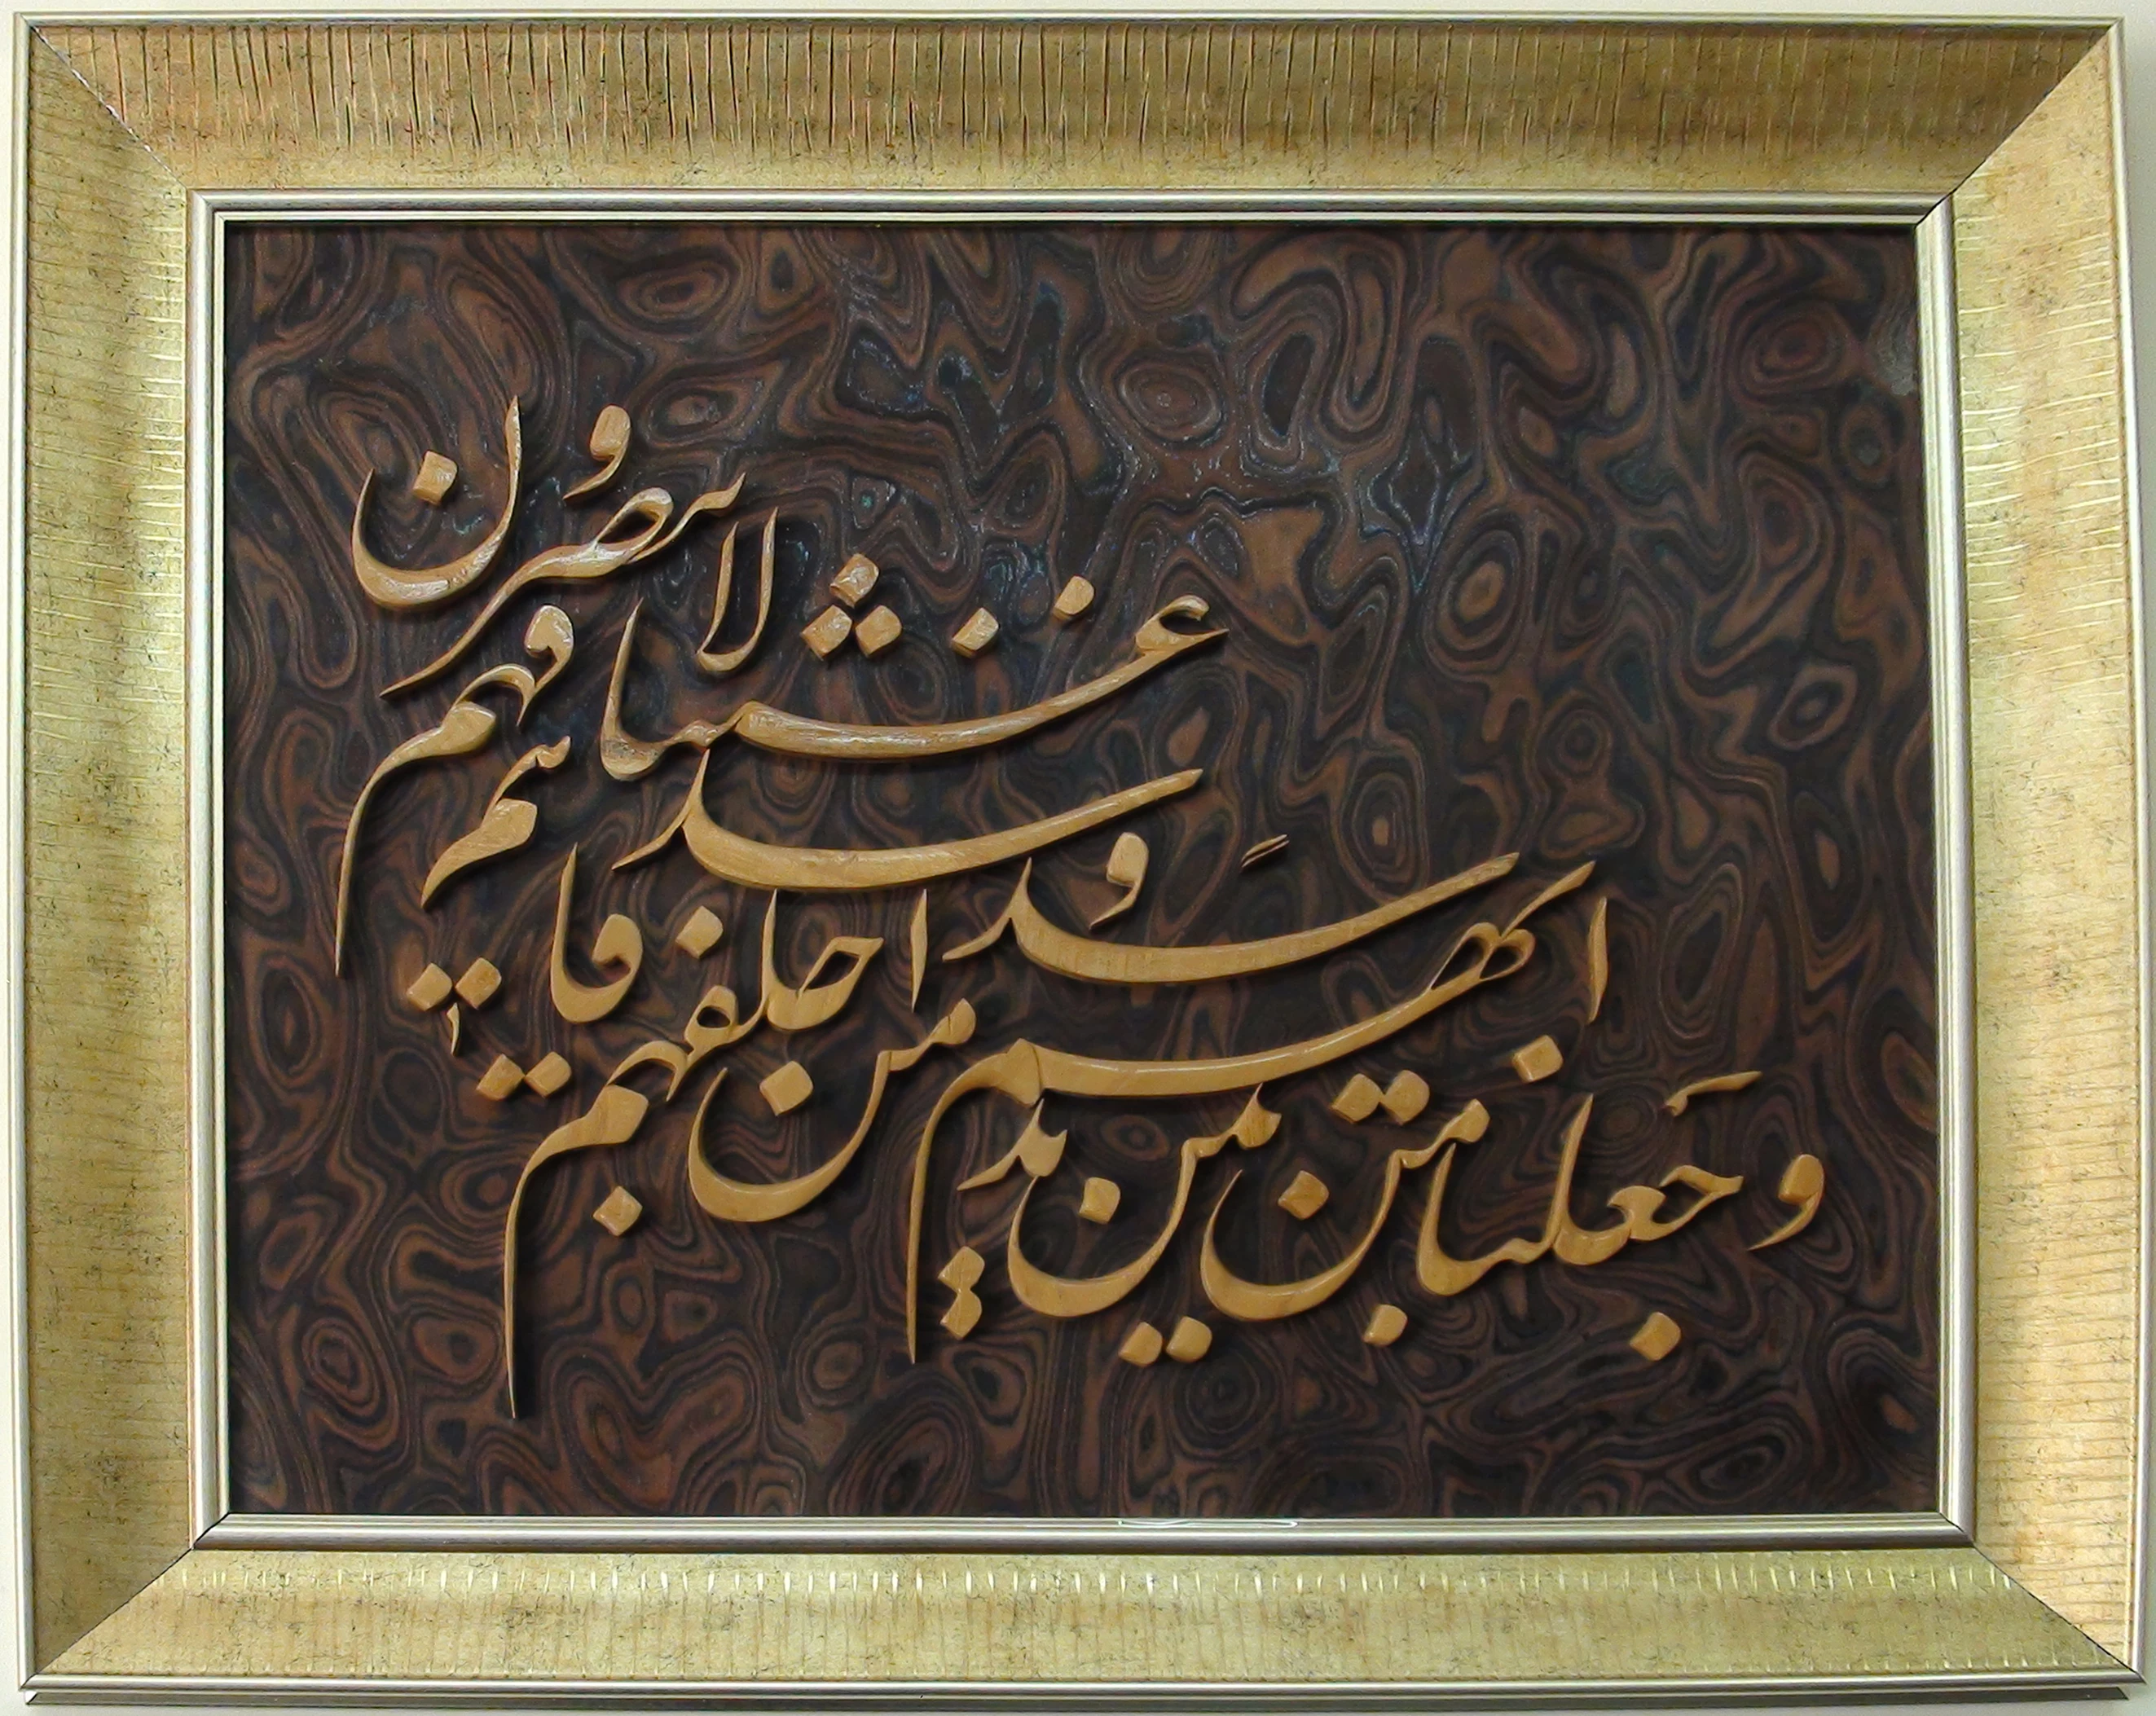 و جعلنا من بین ایدیهم سدا
و من خلفهم سدا
فاغشیناهم فهم لا یبصرون